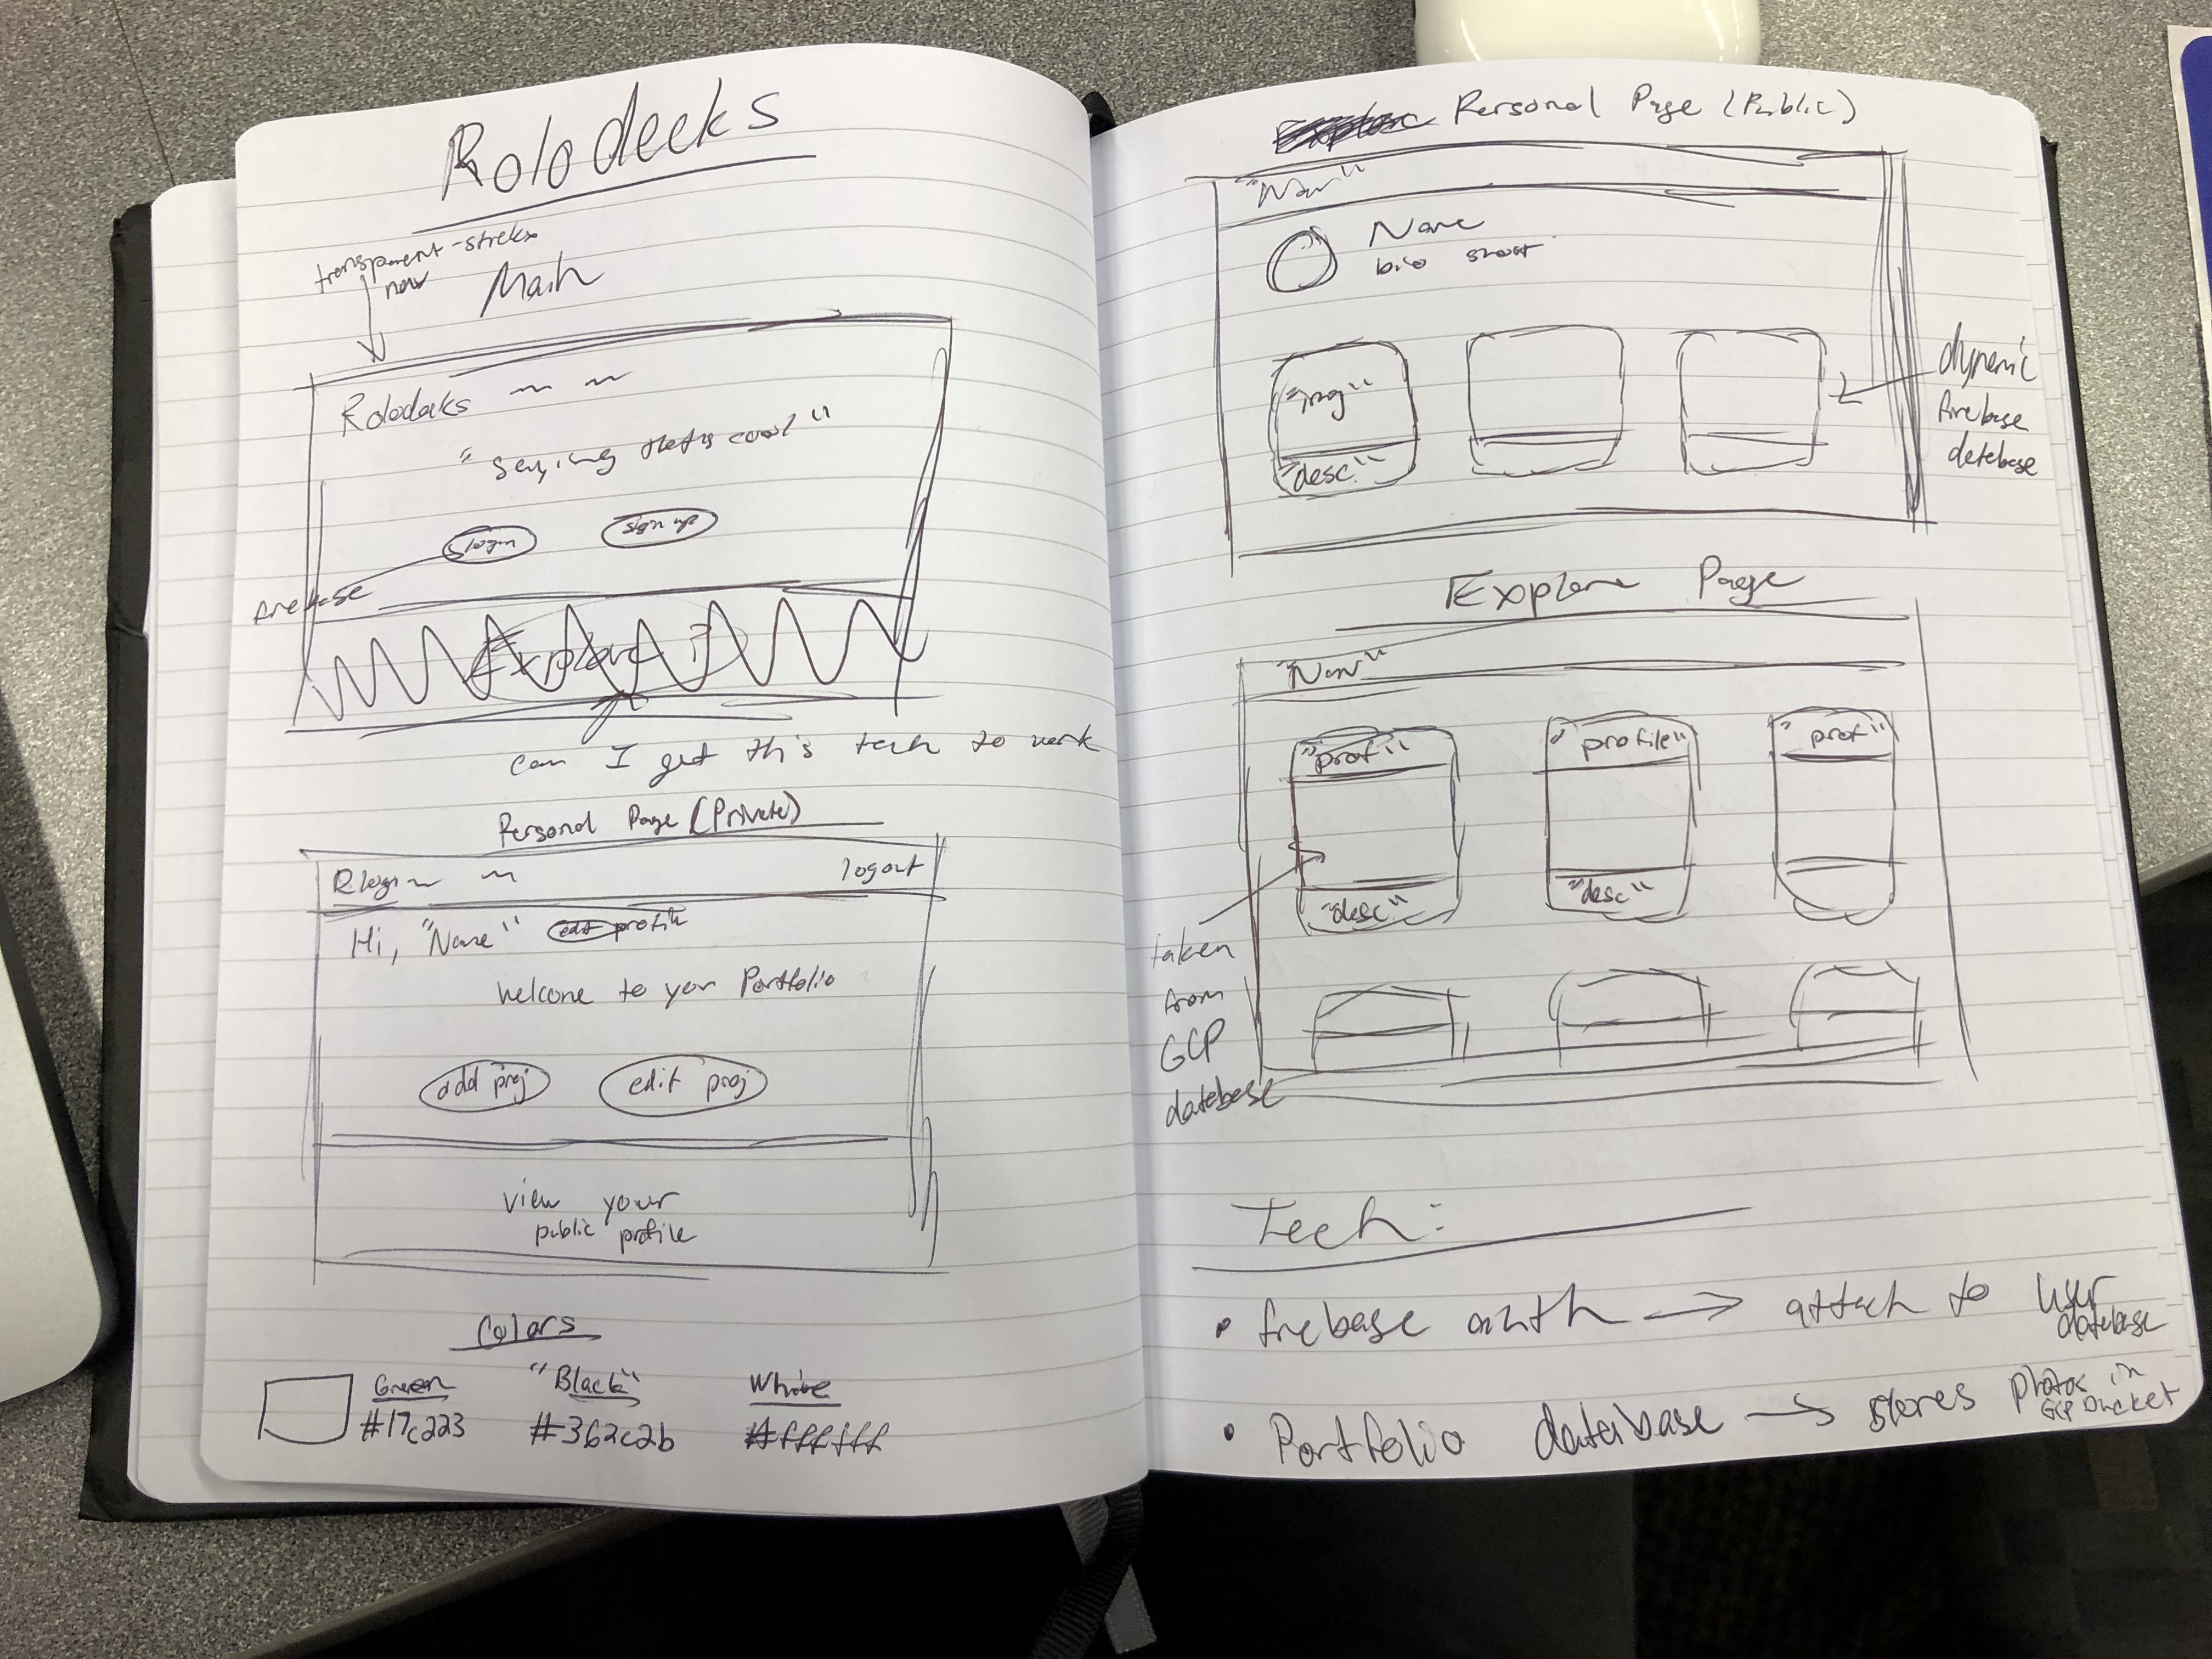 Rolodecks
transparent - sticky
nav
Main
Rolodecks
"saying that's cool"
login
sign up
firebase
Explore
can I get this tech to work
Personal Page (Private)
logout
Hi, "Name" edit profile
welcome to your Portfolio
add proj
edit proj
view your
public profile
Colors
Green
#17c223
"Black"
#362c2b
White
#ffffff
Personal Page (Public)
"Nav"
Name
bio short
"img"
"desc."
dynamic
firebase
database
Explore Page
"Nav"
"prof"
"profile"
"prof"
"desc"
"desc"
taken
from
GCP
database
Tech:
• firebase auth → attach to user
database
• Portfolio database → stores photos in
GCP bucket